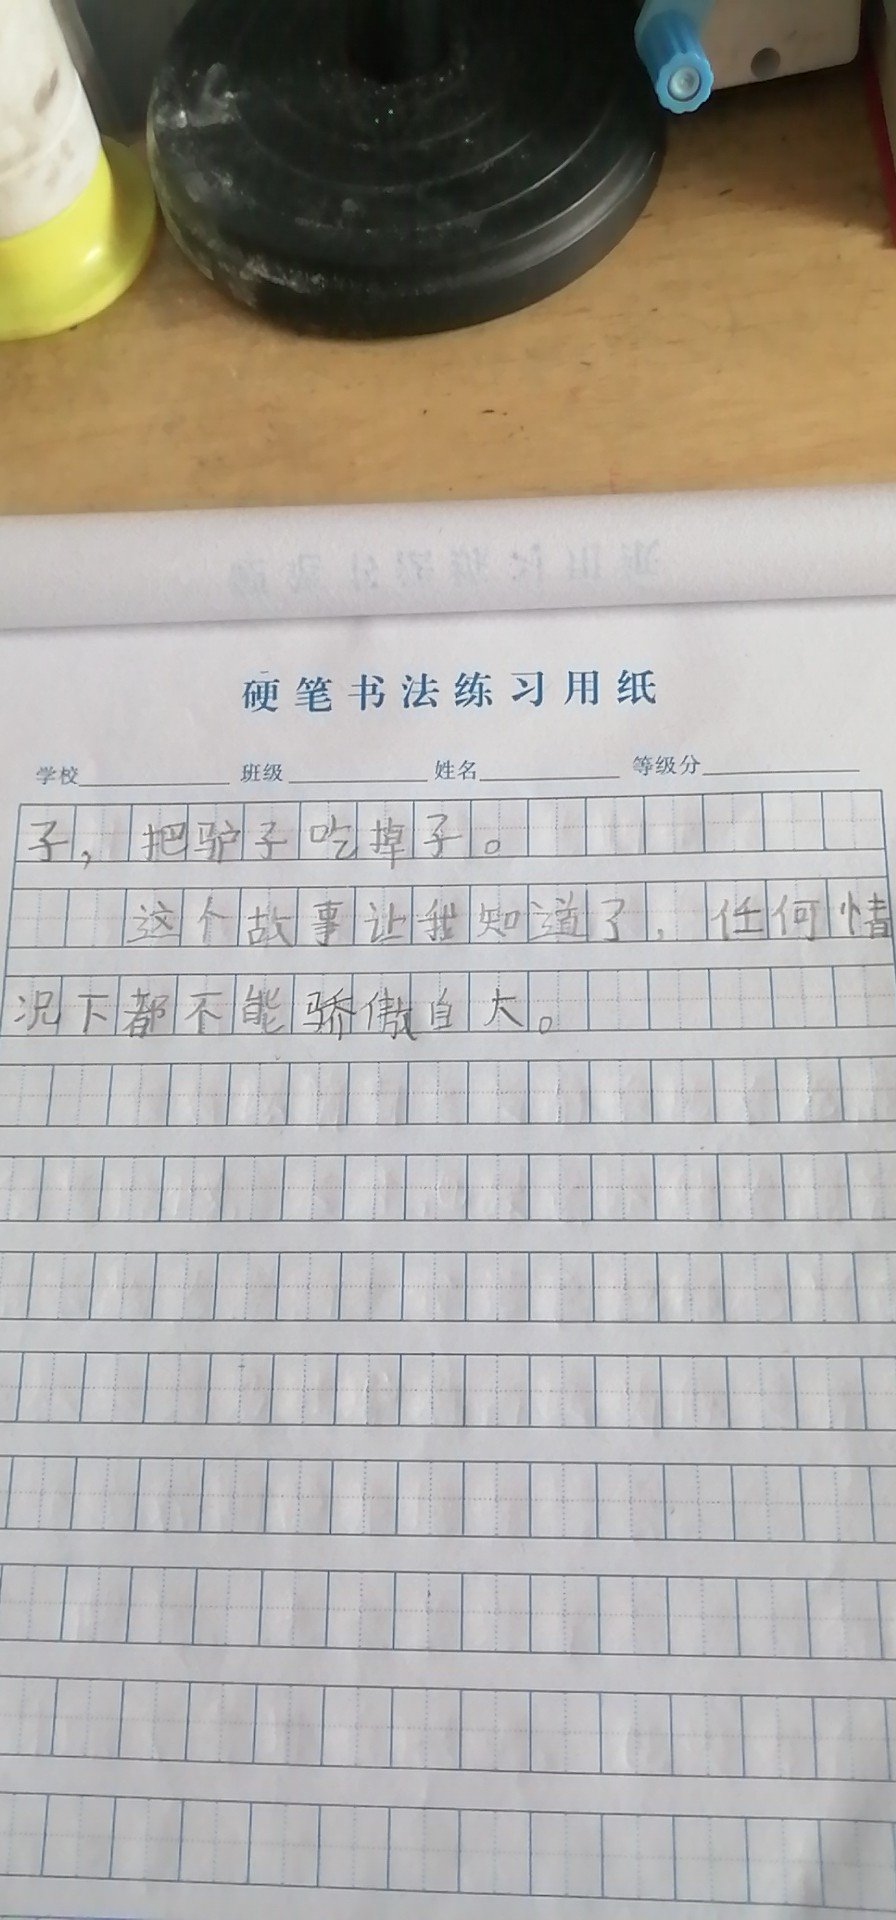 硬笔书法练习用纸
学校 班级 姓名 等级分
子，把驴子吃掉子。
这个故事让我知道了，任何情
况下都不能骄傲自大。